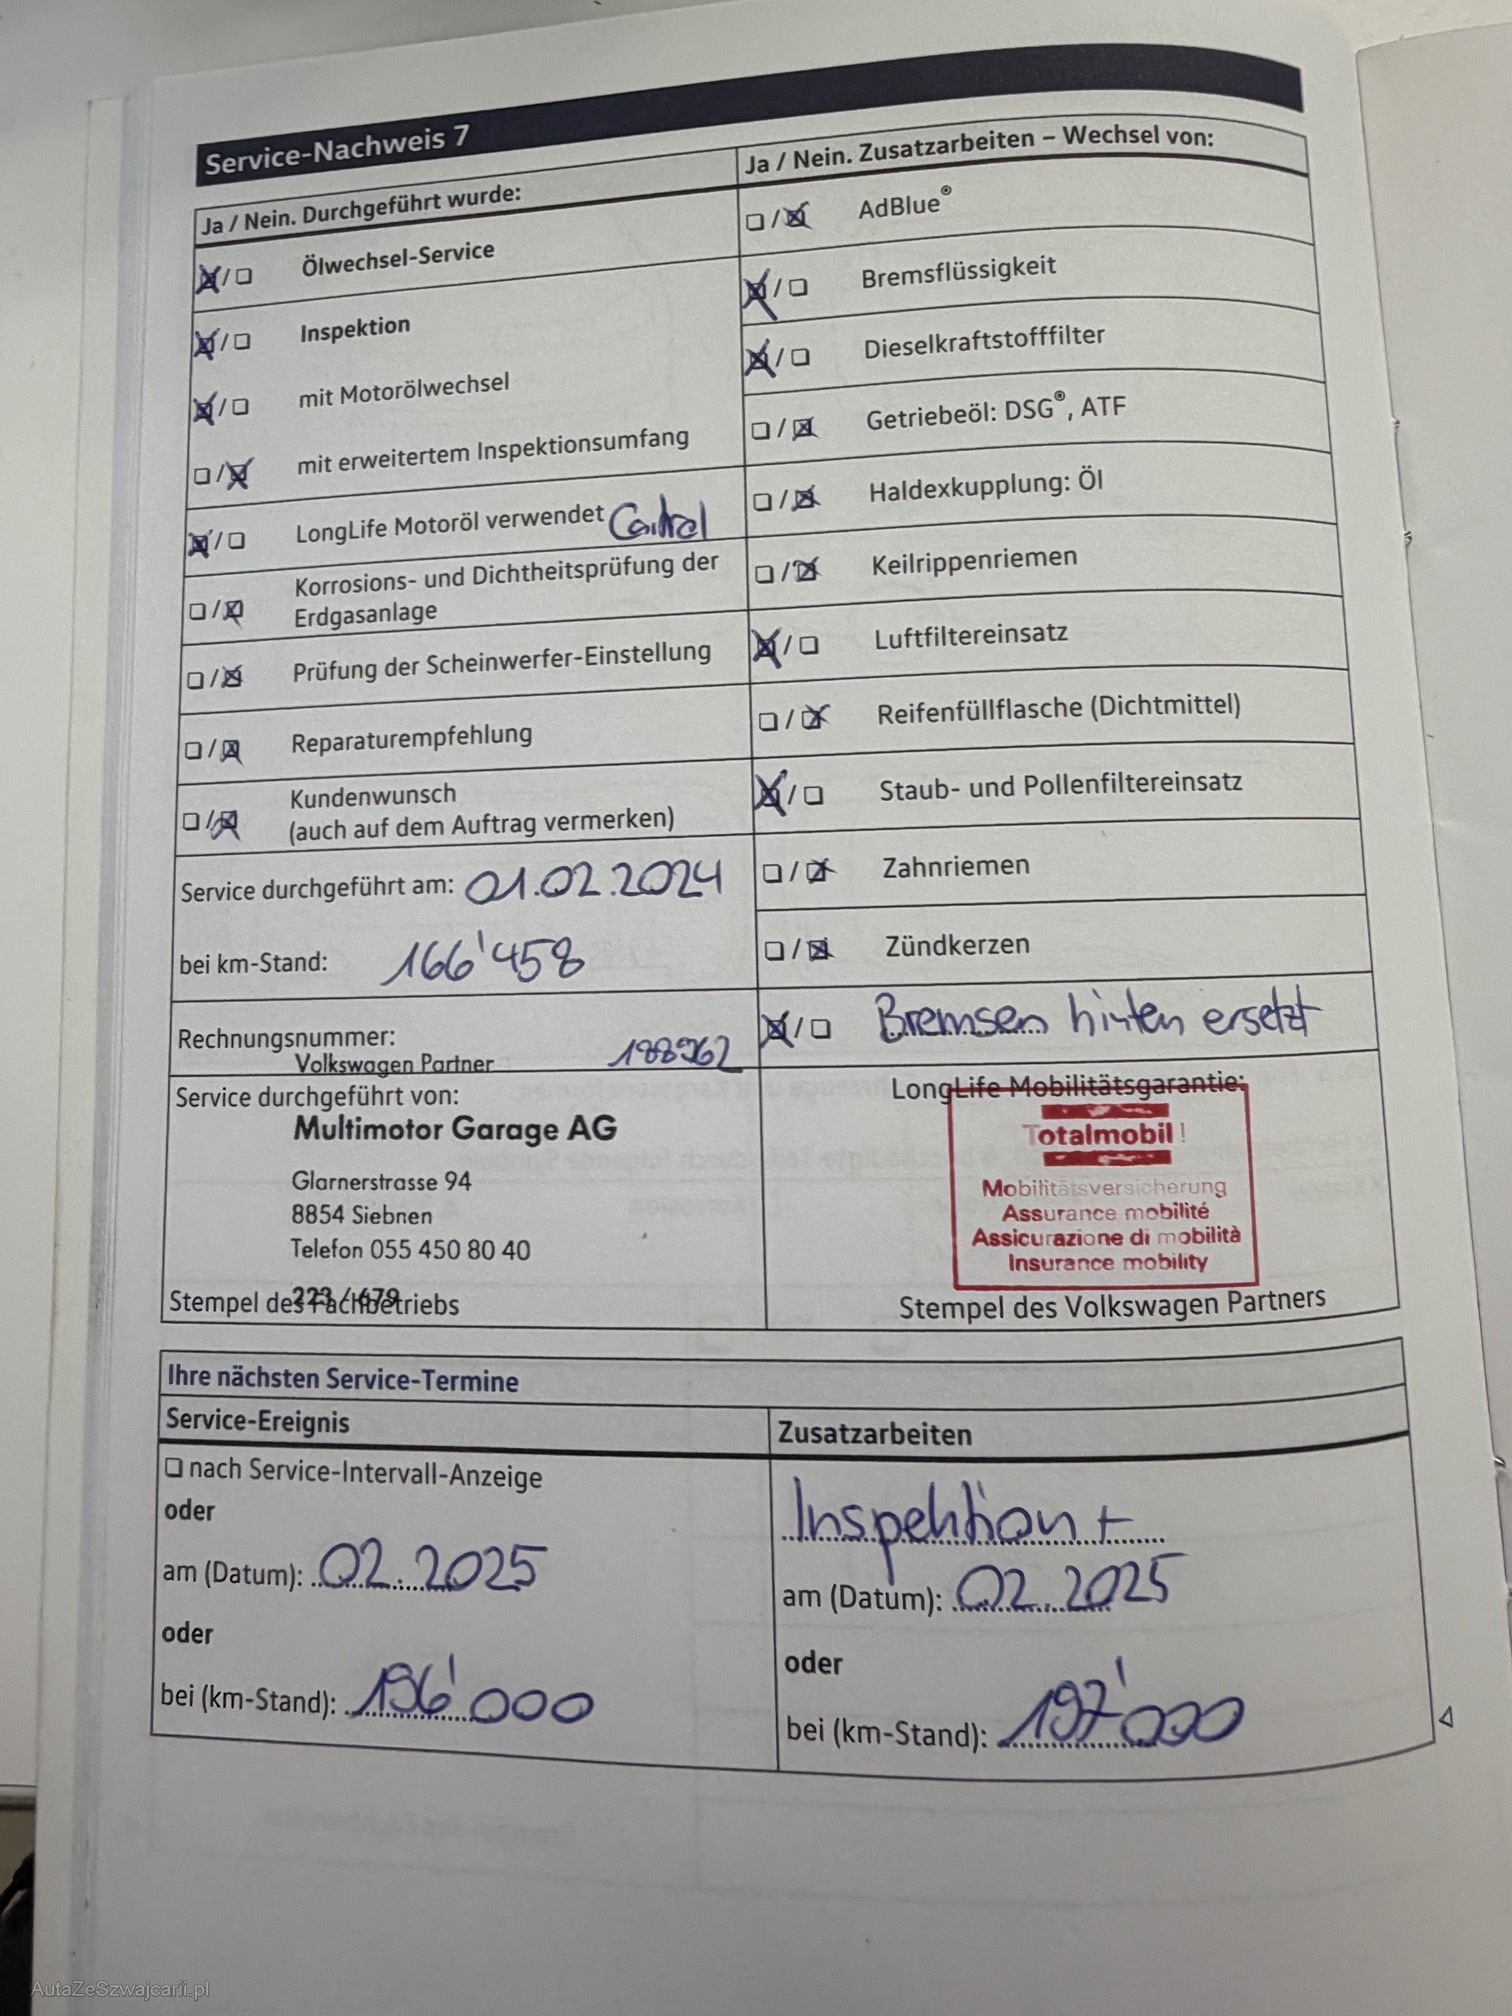 Service-Nachweis 7
Ja / Nein. Durchgeführt wurde:
Ölwechsel-Service
Inspektion
mit Motorölwechsel
mit erweitertem Inspektionsumfang
LongLife Motoröl verwendet
Korrosions- und Dichtheitsprüfung der
Erdgasanlage
Prüfung der Scheinwerfer-Einstellung
Reparaturempfehlung
Kundenwunsch
(auch auf dem Auftrag vermerken)
Service durchgeführt am: 01.02.2024
bei km-Stand: 166'458
Ja / Nein. Zusatzarbeiten – Wechsel von:
AdBlue®
Bremsflüssigkeit
Dieselkraftstofffilter
Getriebeöl: DSG®, ATF
Haldexkupplung: Öl
Keilrippenriemen
Luftfiltereinsatz
Reifenfüllflasche (Dichtmittel)
Staub- und Pollenfiltereinsatz
Zahnriemen
Zündkerzen
Bremsen hinten ersetzt
Rechnungsnummer:
Volkswagen Partner
Service durchgeführt von:
Multimotor Garage AG
Glarnerstrasse 94
8854 Siebnen
Telefon 055 450 80 40
223 / 679
Stempel des Fachbetriebs
LongLife Mobilitätsgarantie:
Totalmobil!
Mobilitätsversicherung
Assurance mobilité
Assicurazione di mobilità
Insurance mobility
Stempel des Volkswagen Partners
Ihre nächsten Service-Termine
Service-Ereignis
nach Service-Intervall-Anzeige
oder
am (Datum): 02.2025
oder
bei (km-Stand): 196'000
Zusatzarbeiten
Inspektion +
am (Datum): 02.2025
oder
bei (km-Stand): 197'000
AutaZeSzwajcarii.pl